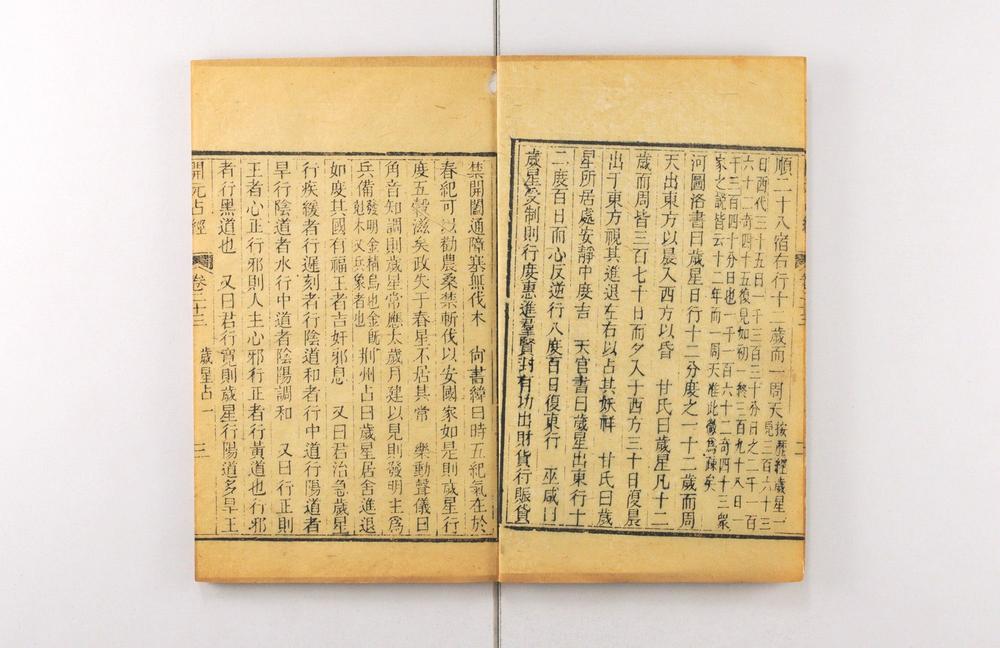 順二十八宿右行十二歲而一周天按歷經歲星一
見三百六十三
日酉代三十五日一千三百三十分日之二千一百
六十二奇四十五復見如初一終三百九十八日一
千三百四十分日也一千一百六十二奇四十三衆
家之説皆云十二年而一周天准此微為疎矣
河圖洛書曰歲星日行十二分度之一十二歲而周
天出東方以晨入西方以昏 甘氏曰歲星凡十二
歲而周皆三百七十日而夕入于西方三十日復晨
出于東方視其進退左右以占其妖祥 甘氏曰歲
星所居處安靜中度吉 天官書曰歲星出東行十
二度百日而心反逆行八度百日復東行 巫咸曰
歲星受制則行度惠進羣賢封有功出財貨行賑貸
禁開闔通障塞無伐木 尚書緯曰時五紀氣在於
春紀可以勸農桑禁斬伐以安國家如是則歲星行
度五穀滋矣政失于春星不居其常 樂動聲儀曰
角音知調則歲星常應太歲月建以見則發明主爲
兵備發明金精鳥也金旣
尅木又兵象者也荆州占曰歲星居舍進退
如度其國有福王者吉奸邪息 又曰君治急歲星
行疾緩者行遲刻者行陰道和者行中道行陽道者
旱行陰道者水行中道者陰陽調和 又曰行正則
王者心正行邪則人主心邪行正者行黃道也行邪
者行黑道也 又曰君行寬則歲星行陽道多旱王
開元占經 卷二十三 歲星占一 三